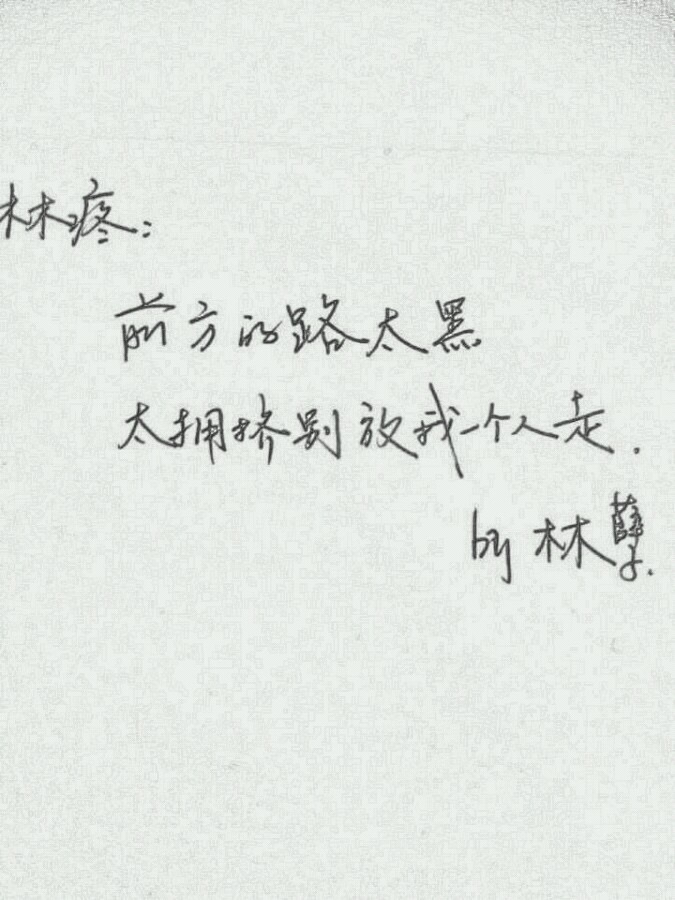 林疼:
前方的路太黑
太拥挤别放我一个人走.
by 林孽.